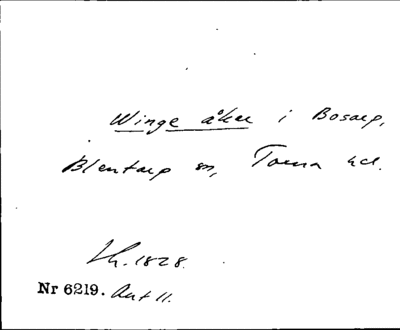 Winge åker i Bosarp,
Blentarp sn, Torna hd.
Lh. 1828.
Nr 6219. Akt 11.